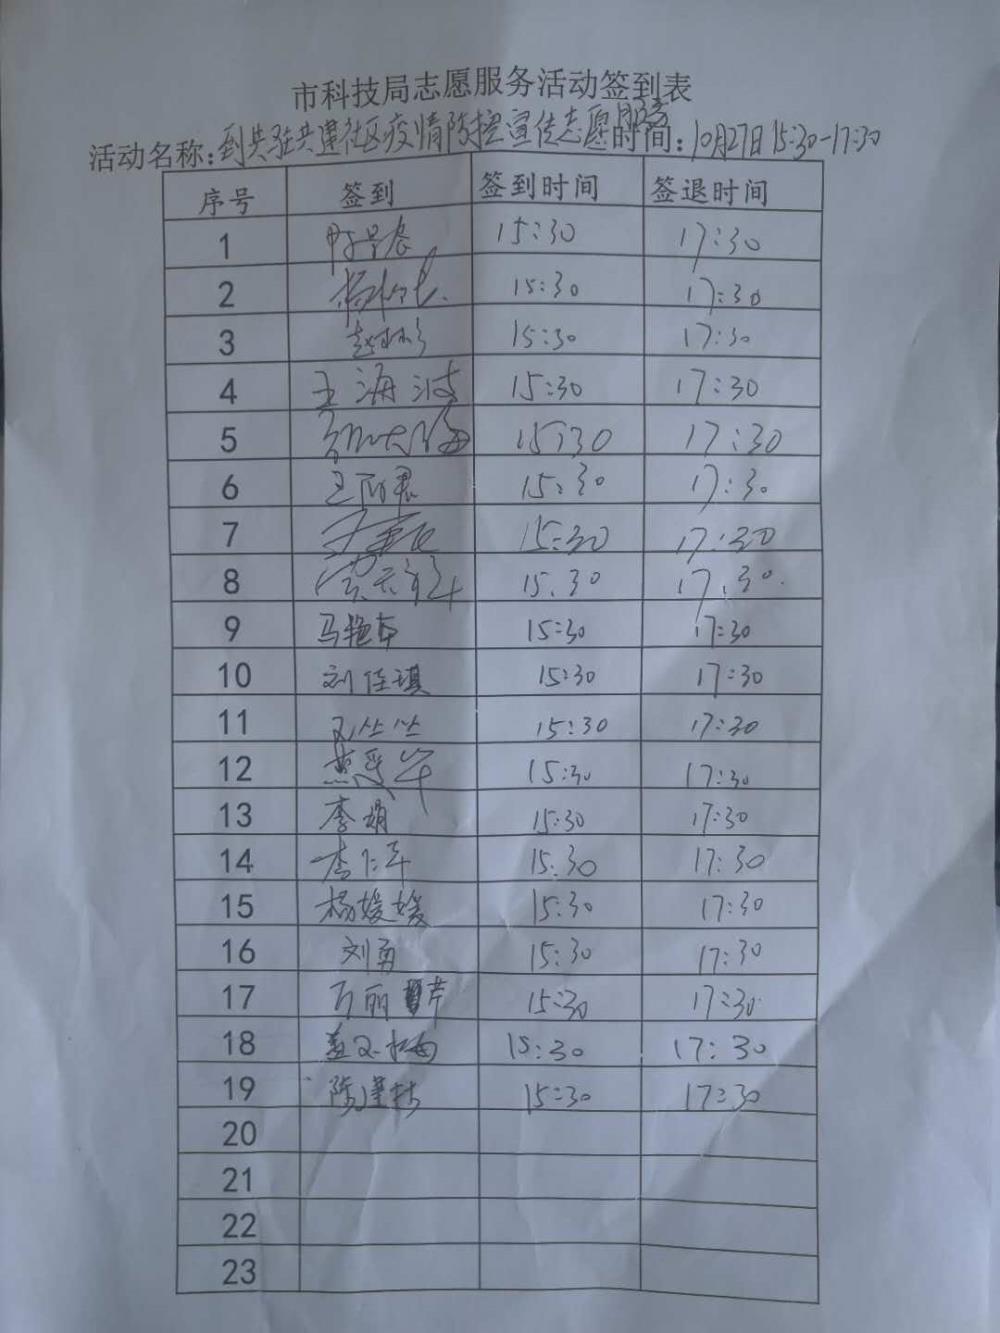 市科技局志愿服务活动签到表
活动名称:到共驻共建社区疫情防控宣传志愿服务 时间:10月27日 15:30-17:30
序号 签到 签到时间 签退时间
1 15:30 17:30
2 15:30 17:30
3 15:30 17:30
4 王海波 15:30 17:30
5 15:30 17:30
6 15:30 17:30
7 15:30 17:30
8 15.30 17.30.
9 马艳 15:30 17:30
10 刘佳琪 15:30 17:30
11 丛丛 15:30 17:30
12 15:30 17:30
13 李娟 15:30 17:30
14 李仁军 15:30 17:30
15 杨媛媛 15:30 17:30
16 刘勇 15:30 17:30
17 万丽芹 15:30 17:30
18 15:30 17:30
19 15:30 17:30
20
21
22
23